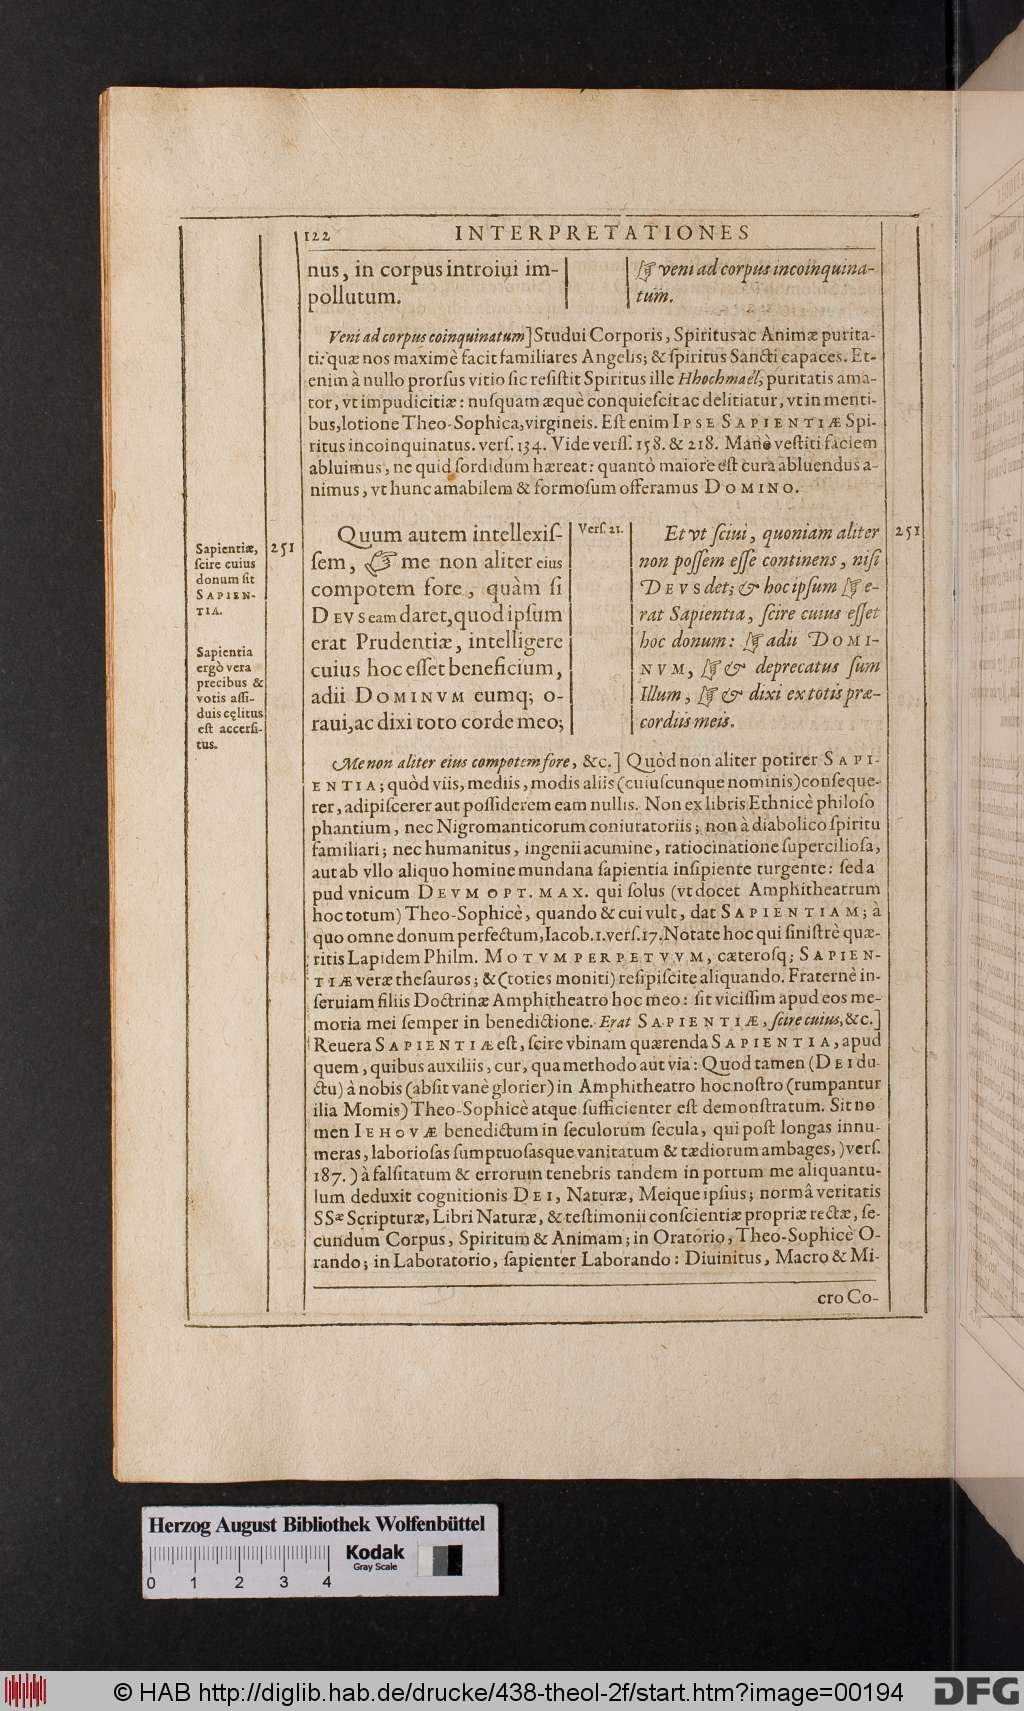 122
INTERPRETATIONES
nus, in corpus introiui im-
pollutum.
☞ veni ad corpus incoinquina-
tum.
Veni ad corpus coinquinatum] Studui Corporis, Spiritus ac Animæ purita-
ti: quæ nos maximè facit familiares Angelis; & spiritus Sancti capaces. Et-
enim à nullo prorsus vitio sic resistit Spiritus ille Hhochmaël, puritatis ama-
tor, vt impudicitiæ: nusquam æquè conquiescit ac delitiatur, vt in menti-
bus, lotione Theo-Sophica, virgineis. Est enim IPSE SAPIENTIÆ Spi-
ritus incoinquinatus. vers. 134. Vide verss. 158. & 218. Manè vestiti faciem
abluimus, ne quid sordidum hæreat: quantò maiore est cura abluendus a-
nimus, vt hunc amabilem & formosum offeramus DOMINO.
Sapientiæ,
scire cuius
donum sit
SAPIEN-
TIA.
Sapientia
ergò vera
precibus &
votis assi-
duis cęlitus
est accersi-
tus.
251
Quum autem intellexis-
sem, ☞ me non aliter eius
compotem fore, quàm si
DEVS eam daret, quod ipsum
erat Prudentiæ, intelligere
cuius hoc esset beneficium,
adii DOMINVM eumq; o-
raui, ac dixi toto corde meo;
Vers 21.
Et vt sciui, quoniam aliter
non possem esse continens, nisi
DEVS det; & hoc ipsum ☞ e-
rat Sapientia, scire cuius esset
hoc donum: ☞ adii DOMI-
NVM, ☞ & deprecatus sum
Illum, ☞ & dixi ex totis præ-
cordiis meis.
251
Me non aliter eius compotem fore, &c.] Quòd non aliter potirer SAPI-
ENTIA; quòd viis, mediis, modis aliis (cuiuscunque nominis) conseque-
rer, adipiscerer aut possiderem eam nullis. Non ex libris Ethnicè philoso
phantium, nec Nigromanticorum coniuratoriis; non à diabolico spiritu
familiari; nec humanitus, ingenii acumine, ratiocinatione superciliosa,
aut ab vllo aliquo homine mundana sapientia insipiente turgente: sed a
pud vnicum DEVM OPT. MAX. qui solus (vt docet Amphitheatrum
hoc totum) Theo-Sophicè, quando & cui vult, dat SAPIENTIAM; à
quo omne donum perfectum, Iacob. 1. vers. 17. Notate hoc qui sinistrè quæ-
ritis Lapidem Philm. MOTVM PERPETVVM, cæterosq; SAPIEN-
TIÆ veræ thesauros; & (toties moniti) resipiscite aliquando. Fraternè in-
seruiam filiis Doctrinæ Amphitheatro hoc meo: sit vicissim apud eos me-
moria mei semper in benedictione. Erat SAPIENTIÆ, scire cuius, &c.]
Reuera SAPIENTIÆ est, scire vbinam quærenda SAPIENTIA, apud
quem, quibus auxiliis, cur, qua methodo aut via: Quod tamen (DEI du-
ctu) à nobis (absit vanè glorier) in Amphitheatro hoc nostro (rumpantur
ilia Momis) Theo-Sophicè atque sufficienter est demonstratum. Sit no
men IEHOVÆ benedictum in seculorum secula, qui post longas innu-
meras, laboriosas sumptuosasque vanitatum & tædiorum ambages, )vers.
187.) à falsitatum & errorum tenebris tandem in portum me aliquantu-
lum deduxit cognitionis DEI, Naturæ, Meique ipsius; normâ veritatis
SSæ Scripturæ, Libri Naturæ, & testimonii conscientiæ propriæ rectæ, se-
cundum Corpus, Spiritum & Animam; in Oratorio, Theo-Sophicè O-
rando; in Laboratorio, sapienter Laborando: Diuinitus, Macro & Mi-
cro Co-
Herzog August Bibliothek Wolfenbüttel
Kodak
Gray Scale
0 1 2 3 4
© HAB http://diglib.hab.de/drucke/438-theol-2f/start.htm?image=00194
DFG